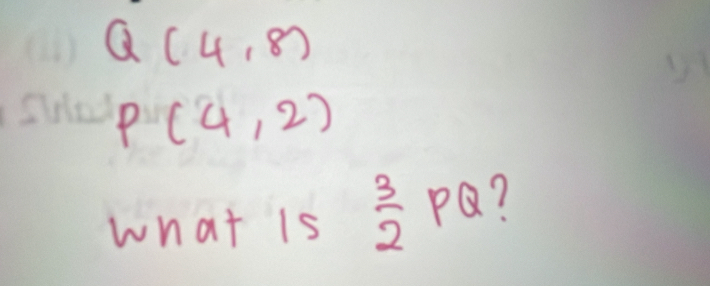 Q (4,8)
P (4,2)
What is 3/2 PQ?